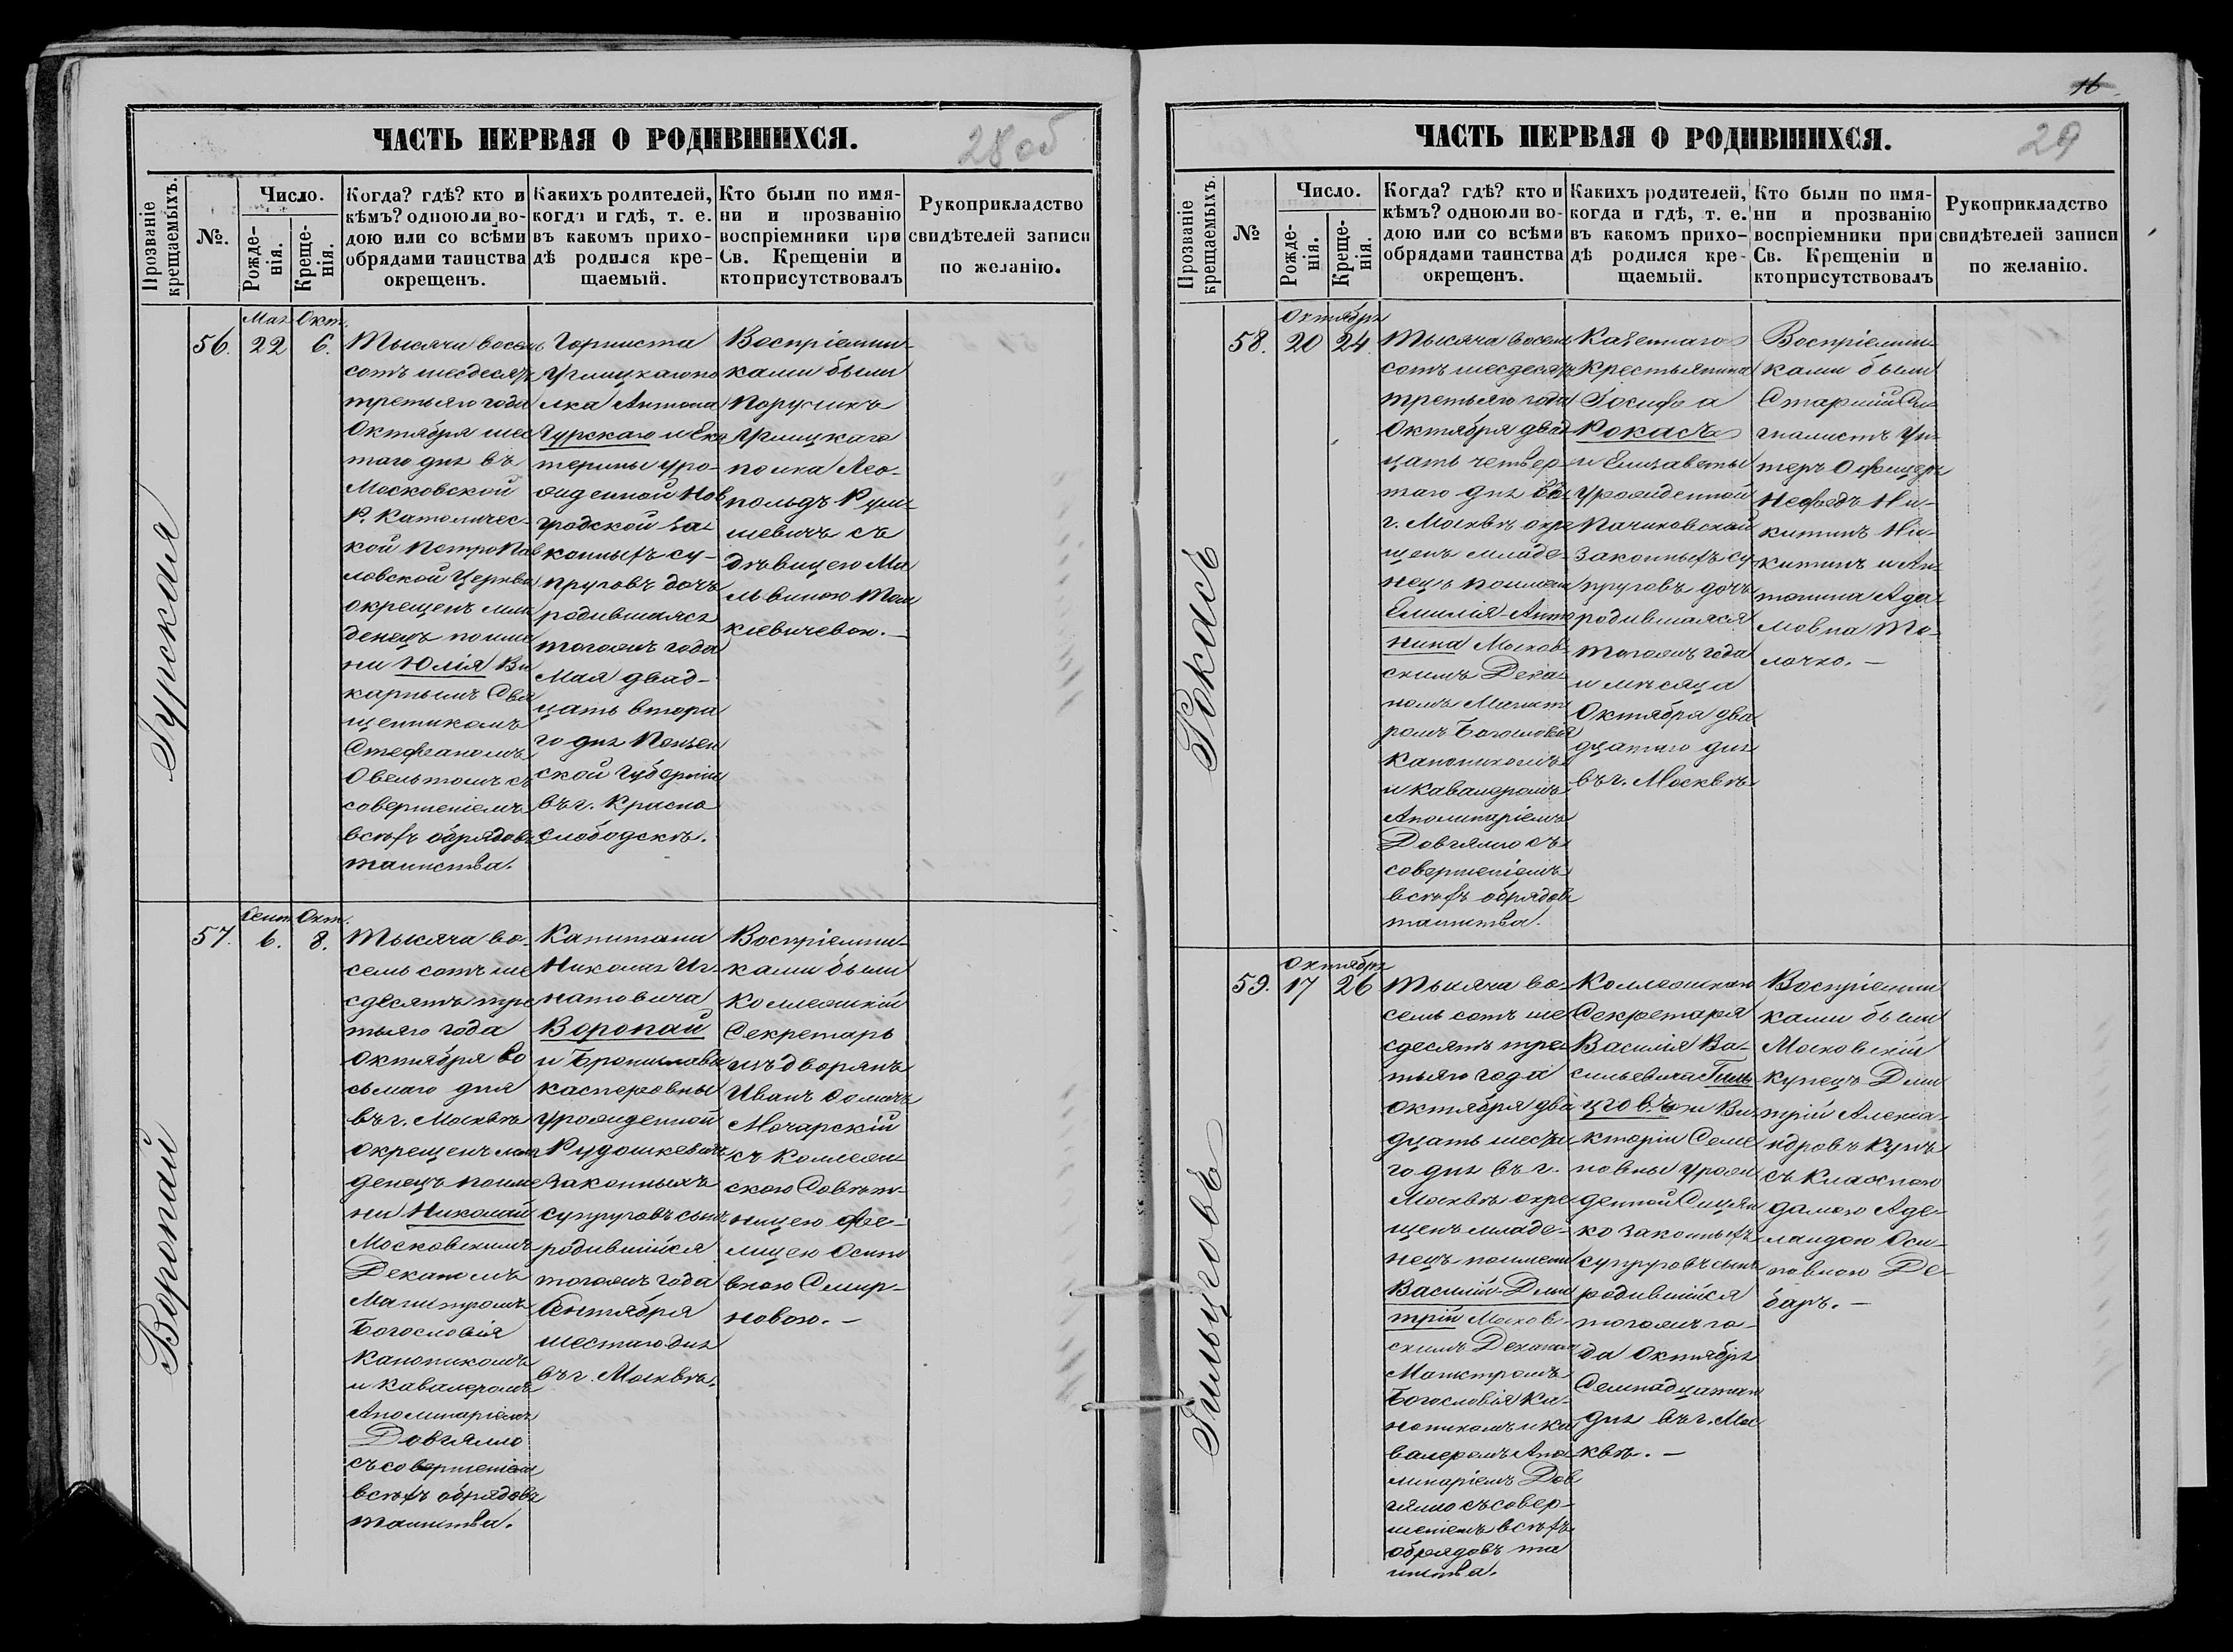 ЧАСТЬ ПЕРВАЯ О РОДИВШИХСЯ.
28 об
Прозваніе крещаемыхъ.
№.
Число.
Рожде-
нія.
Креще-
нія.
Когда? гдѣ? кто и
кѣмъ? одноюли во-
дою или со всѣми
обрядами таинства
окрещенъ.
Какихъ родителей,
когда и гдѣ, т. е.
въ какомъ прихо-
дѣ родился кре-
щаемый.
Кто были по имя-
ни и прозванію
воспріемники при
Св. Крещеніи и
ктоприсутствовалъ
Рукоприкладство
свидѣтелей записи
по желанію.
Гурская
56.
Мая
22
Окт.
6.
Тысяча восемь
сотъ шесдесятъ
третьяго года
Октября шес
таго дня въ
Московской
Р. Католичес-
кой ПетроПав
ловской Церкви
окрещенъ мла
денецъ по име
ни Юлія Ви
карнымъ Свя
щенникомъ
Стефаномъ
Овельтомъ съ
совершеніемъ
всѣхъ обрядовъ
таинства.
Горниста
Углицкаго по
лка Антона
Гурскаго и Ека
терины уро-
жденной Нов
градской за-
конныхъ су-
пруговъ дочь
родившаяся
тогожъ года
Мая двад-
цать втора
го дня Пензен
ской Губерніи
въ г. Красно
слободскѣ.
Воспріемни-
ками были
Поручикъ
Углицкаго
полка Лео-
польдъ Рум-
шевичъ съ
дѣвицею Ма
львиною Том
кевичевою.—
Воропай
57.
Сент.
6.
Окт.
8.
Тысяча во-
семь сотъ ше
сдесятъ тре
тьяго года
Октября во
сьмаго дня
въ г. Москвѣ
окрещенъ мла
денецъ по име
ни Николай
Московскимъ
Деканомъ
Магистромъ
Богословія
Каноникомъ
и Кавалеромъ
Аполинаріемъ
Довгялло
съ совершеніем
всѣхъ обрядовъ
таинства.
Капитана
Николая Иг-
натовича
Воропай
и Брониславы
Касперовны
урожденной
Рудошкевичъ
законныхъ
супруговъ сынъ
родившійся
тогожъ года
Сентября
шестаго дня
въ г. Москвѣ.
Воспріемни-
ками были
Коллежскій
Секретарь
изъ дворянъ
Иванъ Фомичъ
Мочарскій
съ Коллеж-
скою Совѣт-
ницею Фе-
лицею Осипо
вною Смир-
новою.—
16
ЧАСТЬ ПЕРВАЯ О РОДИВШИХСЯ.
29
Прозваніе крещаемыхъ.
№
Число.
Рожде-
нія.
Креще-
нія.
Когда? гдѣ? кто и
кѣмъ? одноюли во-
дою или со всѣми
обрядами таинства
окрещенъ.
Какихъ родителей,
когда и гдѣ, т. е.
въ какомъ прихо-
дѣ родился кре-
щаемый.
Кто были по имя-
ни и прозванію
воспріемники при
Св. Крещеніи и
ктоприсутствовалъ
Рукоприкладство
свидѣтелей записи
по желанію.
Рокасъ
58.
Октября
20
24
Тысяча восемь
сотъ шесдесятъ
третьяго года
Октября двад
цать четвер-
таго дня въ
г. Москвѣ окре
щенъ младе-
нецъ по имени
Емилія-Анто
нина Москов-
скимъ Дека-
номъ Магист
ромъ Богословія
Каноникомъ
и Кавалеромъ
Аполинаріемъ
Довгялло съ
совершеніемъ
всѣхъ обрядовъ
таинства.
Казеннаго
Крестьянина
Іосифа
Рокасъ
и Елизаветы
урожденной
Пачиковской
законныхъ су-
пруговъ дочь
родившаяся
тогожъ года
и мѣсяца
Октября два
дцатаго дня
въ г. Москвѣ
Воспріемни-
ками были
Старшій Си-
гналистъ Ун-
теръ Офицеръ
Ни-
китинъ Ни-
китинъ и Ан-
тонина Ада-
мовна То-
лочко.—
Гильцговъ
59.
Октября
17
26
Тысяча во-
семь сотъ ше
сдесятъ тре
тьяго года
Октября два
дцать шеста
го дня въ г.
Москвѣ окре
щенъ младе-
нецъ по имени
Василій-Дми
трій Москов-
скимъ Деканом
Магистромъ
Богословія Ка-
ноникомъ и Ка
валеромъ Апо
линаріемъ Дов
гялло съ совер-
шеніемъ всѣхъ
обрядовъ та
инства.
Коллежскаго
Секретаря
Василія Ва-
сильевича Гиль
цговъ и Ви-
кторіи Семе
новны урож
денной Сицян
ко законныхъ
супруговъ сынъ
родившійся
тогожъ го-
да Октября
Семнадцатаго
дня въ г. Мос
квѣ.—
Воспріемни
ками были
Московскій
купецъ Дми
трій Алекса-
ндровъ Кунъ
съ Классною
дамою Аде-
лаидою Оси-
повною Де-
баръ.—